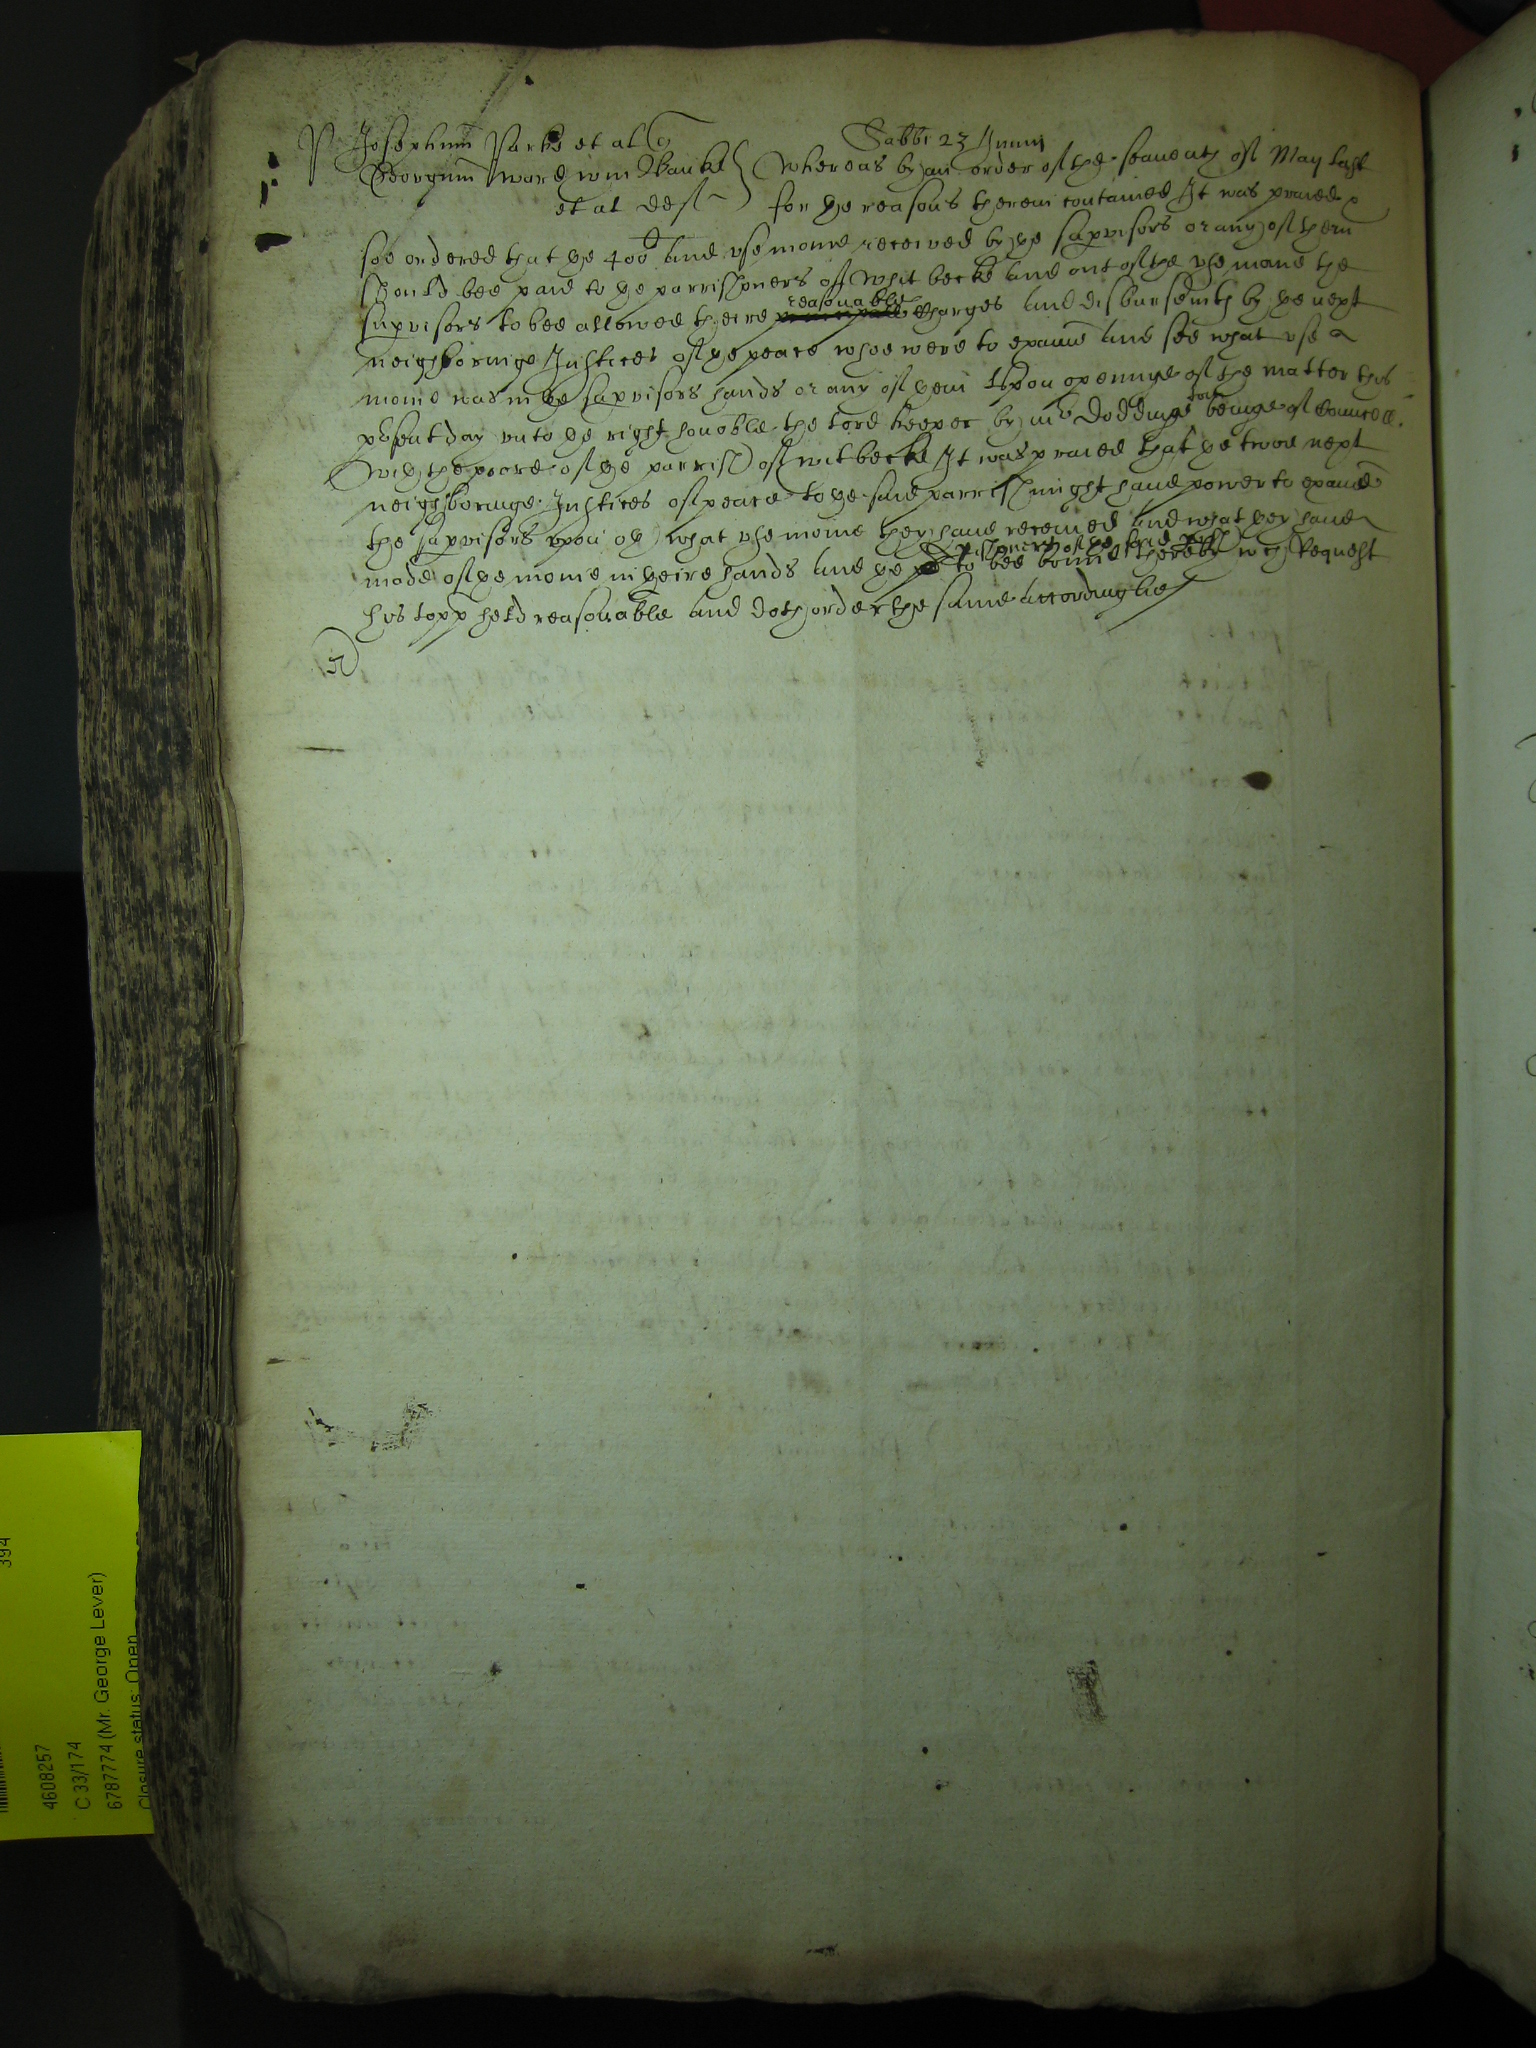 Sabbi 23 Junij
P Josephum Parke et al
Georgium Ward Willm Banke
et al deft
Whereas by an order of the seaventh of May last
for ye reasons therein contained It was praied
soe ordered that ye 400li and vse monie received by ye supvisors or any of them
should bee paid to ye parrishoners of Whitbecke and out of the vse monie the
supvisors to bee allowed theire reasonable charges and disbursemts by ye next
neighboringe Justices of ye peace whoe were to examine and see what vse
monie was in ye supvisors hands or any of yem Vpon openinge of the matter this
psent day vnto ye right honoble the lord keeper by mr Doddinge beinge of councell
wth the poore of ye parrish of Witbecke It was praied that ye twoe next
neighboringe Justices of peace to ye said parrish might have power to examine
the supvisors vpon oth what vse monie they have received and what vey have
made of ye monie in yeire hands and ye pishoners of ye said pish
to bee bound thereby wch Request
his lopp held reasonable and doth order the same accordinglie
394
4608257
C 33/174
6787774 (Mr. George Lever)
Closure status: Open